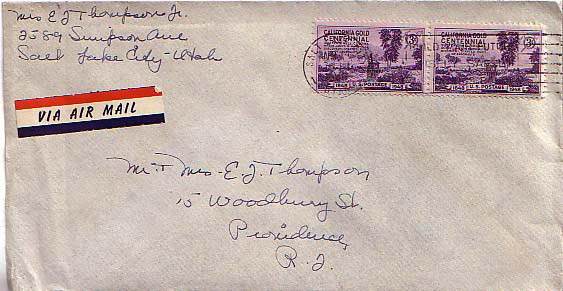 Mrs E J Thompson Jr.
2589 Simpson Ave
Salt Lake City - Utah
VIA AIR MAIL
CALIFORNIA GOLD
CENTENNIAL
3¢
1848 U.S. POSTAGE 1948
CALIFORNIA GOLD
CENTENNIAL
3¢
1848 U.S. POSTAGE 1948
Mr. + Mrs - E. J. Thompson
15 Woodbury St.
Providence,
R. I.